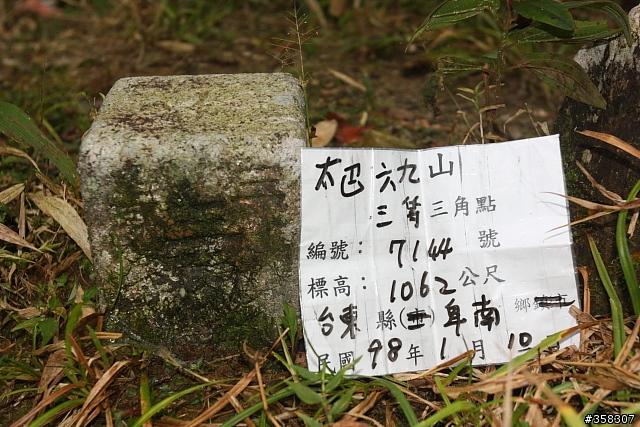 太巴六九山
三等三角點
編號：7144 號
標高：1062公尺
台東縣(市)卑南鄉
民國98年1月10
#358307